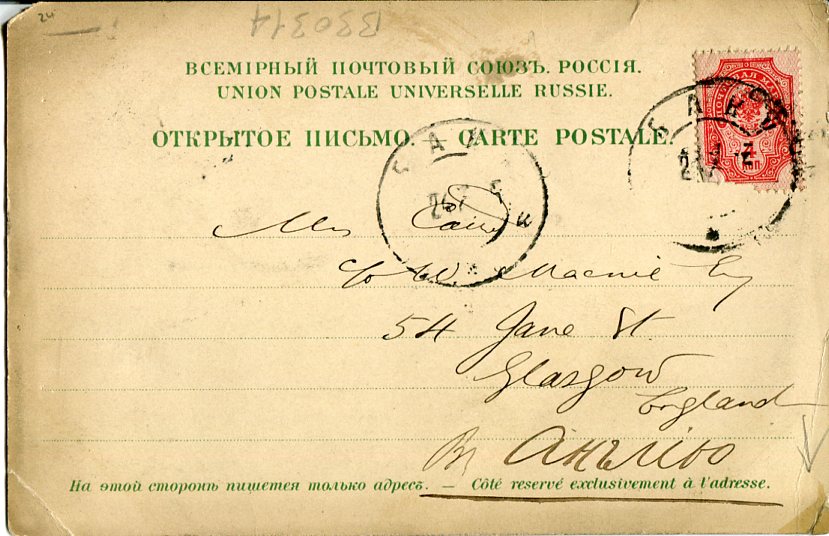 24
B30314
ВСЕМІРНЫЙ ПОЧТОВЫЙ СОЮЗЪ. РОССІЯ.
UNION POSTALE UNIVERSELLE RUSSIE.
ОТКРЫТОЕ ПИСЬМО. — CARTE POSTALE.
ПОЧТОВАЯ МАРКА
4
КОП
БАКУ
БАКУ
Mrs
c/o W. Macnie Esq
54 Jane St
Glasgow
England
Въ Англію
На этой сторонѣ пишется только адресъ. — Côté reservé exclusivement à l'adresse.